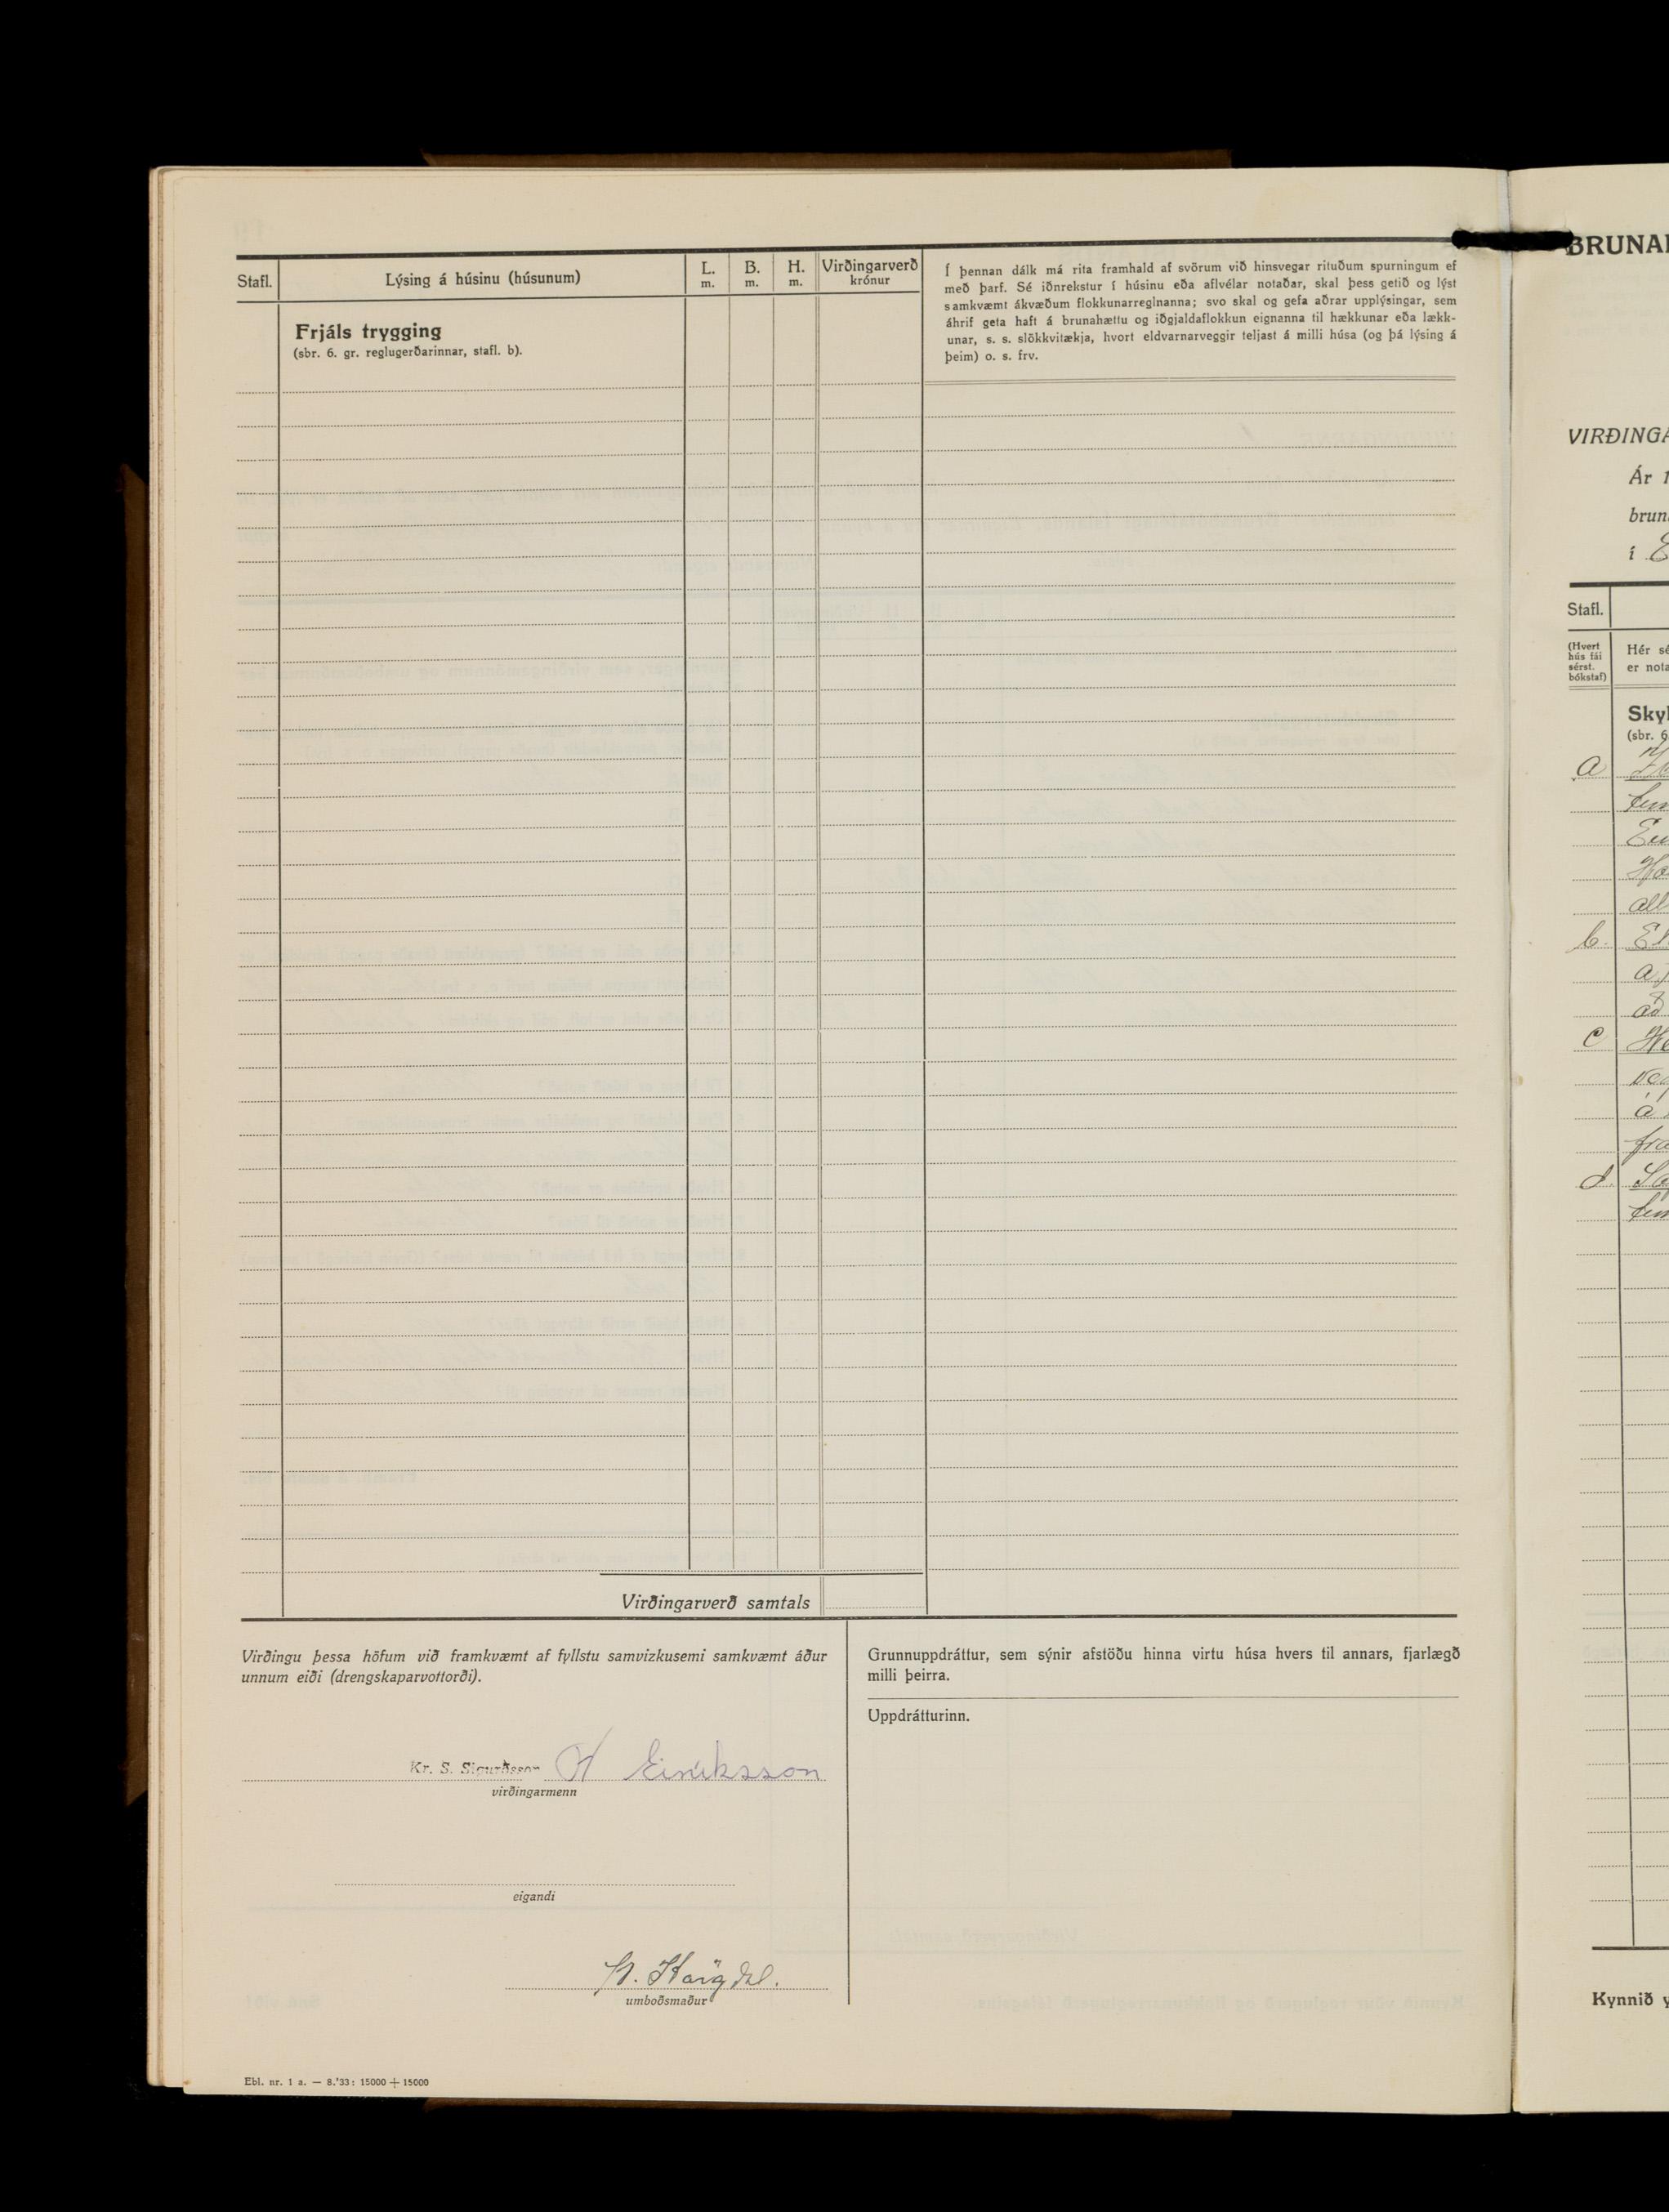 Stafl.
Lýsing á húsinu (húsunum)
L.
m.
B.
m.
H.
m.
Virðingarverð
krónur
Í þennan dálk má rita framhald af svörum við hinsvegar rituðum spurningum ef
með þarf. Sé iðnrekstur í húsinu eða aflvélar notaðar, skal þess getið og lýst
samkvæmt ákvæðum flokkunarreglnanna; svo skal og gefa aðrar upplýsingar, sem
áhrif geta haft á brunahættu og iðgjaldaflokkun eignanna til hækkunar eða lækk-
unar, s. s. slökkvitækja, hvort eldvarnarveggir teljast á milli húsa (og þá lýsing á
þeim) o. s. frv.
Frjáls trygging
(sbr. 6. gr. reglugerðarinnar, stafl. b).
Virðingarverð samtals
Virðingu þessa höfum við framkvæmt af fyllstu samvizkusemi samkvæmt áður
unnum eiði (drengskaparvottorði).
Kr. S. Sigurðsson H Eiríksson
virðingarmenn
eigandi
umboðsmaður
Grunnuppdráttur, sem sýnir afstöðu hinna virtu húsa hvers til annars, fjarlægð
milli þeirra.
Uppdrátturinn.
Ebl. nr. 1 a. — 8.'33: 15000 + 15000
BRUNA
VIRÐINGA
Ár 1
brun
í
Stafl.
(Hvert
hús fái
sérst.
bókstaf)
Hér sé
er nota
Skyl
(sbr. 6
a
b.
c
d.
Kynnið y